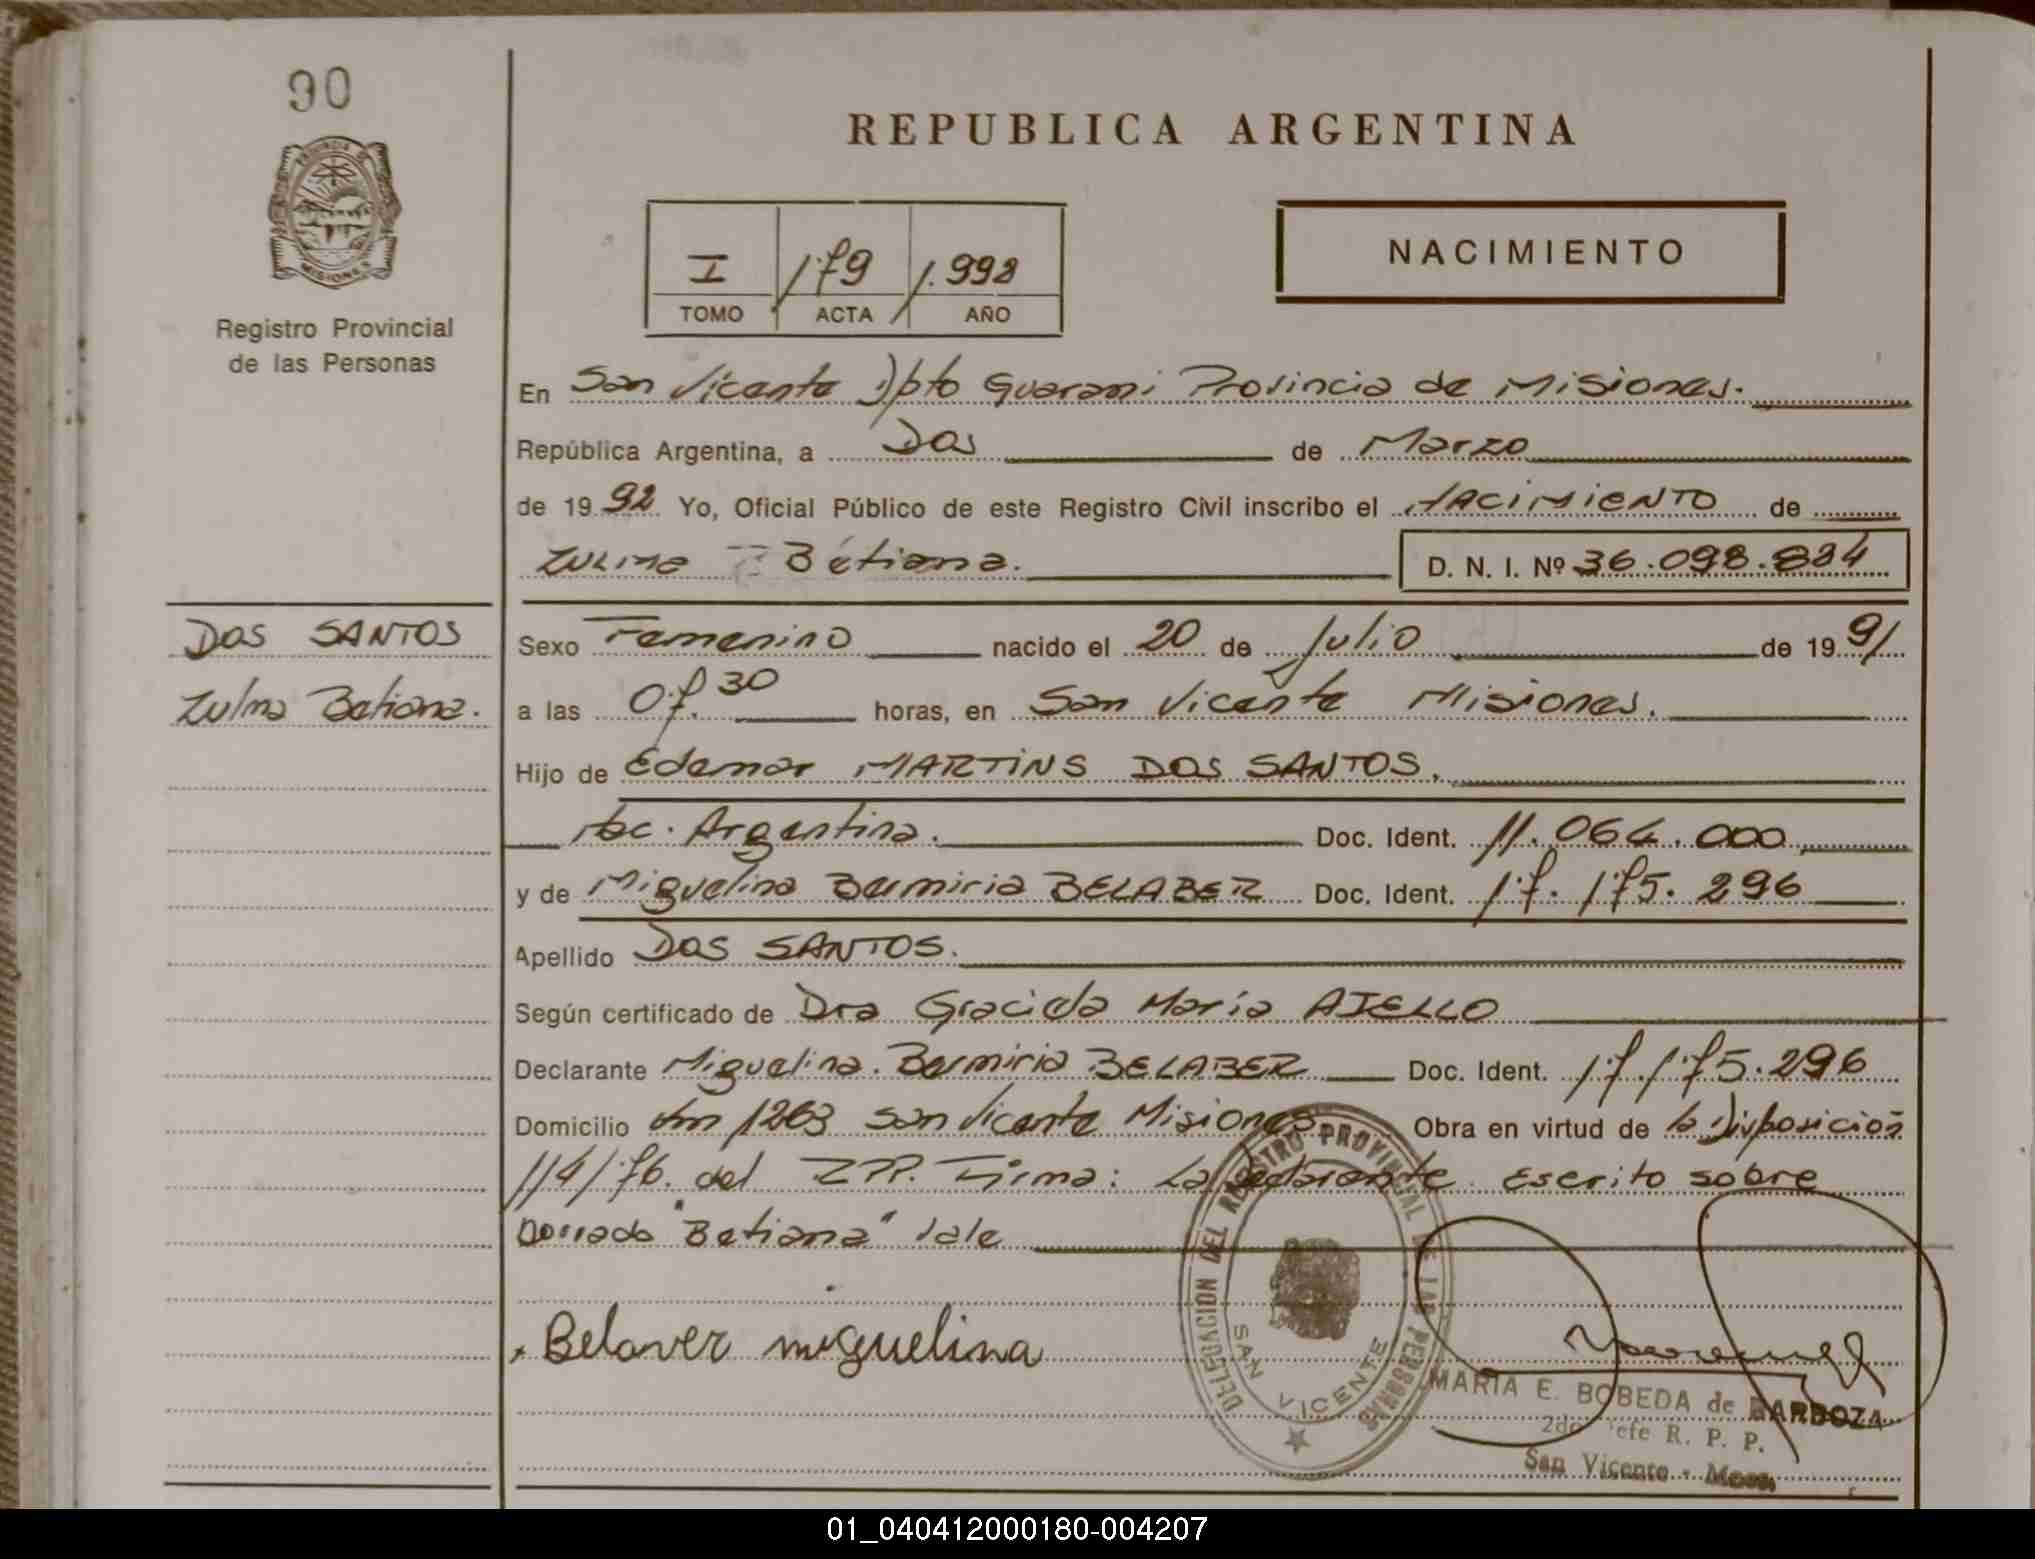 90
PROVINCIA DE
MISIONES
Registro Provincial
de las Personas
DOS SANTOS
Zulma Betiana.
REPUBLICA ARGENTINA
I 179 1.992
TOMO ACTA AÑO
NACIMIENTO
En San Vicente Dpto Guarani Provincia de Misiones.
República Argentina, a Dos de Marzo
de 1992 Yo, Oficial Público de este Registro Civil inscribo el NACIMIENTO de
ZULMA Betiana.
D. N. I. Nº 36.098.884
Sexo Femenino nacido el 20 de Julio de 1991
a las 07.30 horas, en San Vicente Misiones.
Hijo de Edemar MARTINS DOS SANTOS.
Nac. Argentina. Doc. Ident. 11.064.000
y de Miguelina Belmiria BELABER Doc. Ident. 17.175.296
Apellido DOS SANTOS.
Según certificado de Dra Graciela María AIELLO
Declarante Miguelina Belmiria BELABER Doc. Ident. 17.175.296
Domicilio km 1263 San Vicente Misiones Obra en virtud de la Disposición
114/76. del RPP. Firma: La declarante. Escrito sobre
borrado "Betiana" Vale
Belaver miguelina
DELEGACION DEL REGISTRO PROVINCIAL DE LAS PERSONAS
SAN VICENTE
MARIA E. BOBEDA de BARBOZA
2do Jefe R. P. P.
San Vicente - Mnes.
01_040412000180-004207